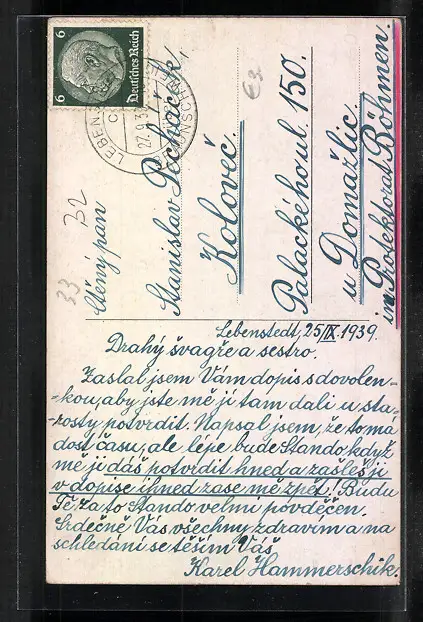 6 Deutsches Reich 6
LEBEN
22.9.3
BRAUNSCHW
33 32
Ctěný pan
Stanislav Pocháček,
Koloveč.
Palackého ul. 150.
u Domažlic
in Protektorat Böhmen.
Lebenstedt, 25/IX. 1939.
Drahý švagře a sestro.
Zaslal jsem Vám dopis s dovolen-
-kou, aby jste mě ji tam dali u sta-
rosty potvrdit. Napsal jsem, že to má
dost času, ale lépe bude Stando, když
mě ji dáš potvrdit hned a zašleš ji
v dopise ihned zase mě zpět! Budu
Tě za to Stando velmi povděčen.
Srdečně Vás všechny zdravím a na
schledání se těším Váš
Karel Hammerschik.